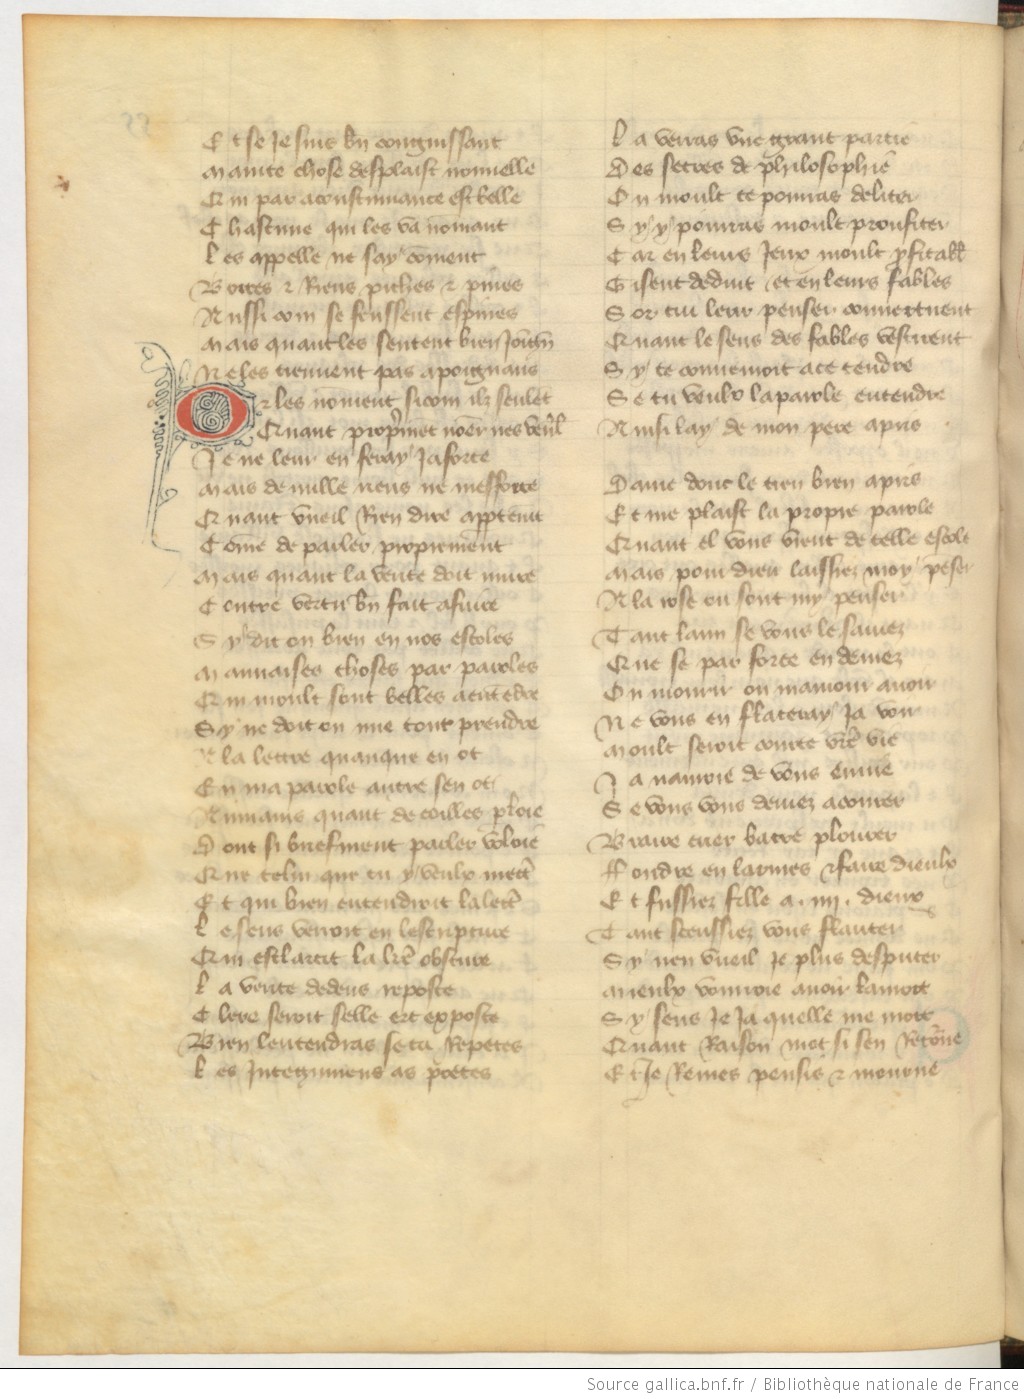 Et se Je suis bn congnissant
Mainte chose desplaist nouuelle
Qui par acoustumance est belle
Chascune qui les va nomant
Les appelle ne say coment
Bources & Riens piches & pines
Aussi com se feussent espines
Mais quant les sentent bien Joingn
Ne les tiennent pas a poignans
Or les noment si com ilz seulet
Quant proprmet noer nes veul
Je ne leur en feray Ja force
Mais de nulle riens ne mefforce
Quant vueil Rien dire apptemt
Come de parler proprement
Mais quant la verite doit nuire
Contre vertu bn fait a fuire
Sy dit on bien en nos escoles
Mainaises choses par paroles
Qui moult sont belles a entedre
Sy ne doit on mie tout prendre
A la lettre quanque en ot
En ma parole autre sen ot
Aumains quant de coilles ploie
Dont si briefment parler voloie
Que celui que tu y veulx mectr
Et qui bien entendroit la lectr
Le sens verroit en lescripture
Qui esclarcit la lre obscure
La verite dedens reposte
Clere seroit selle ert exposte
Bien lentendras se tu Repetes
Les Integumens as poetes
La verras vne grant partie
Des secres de philosophie
Ou moult te pourras deliter
Sy y pourras moult proufiter
Car en leurs Jeux moult pfitabl
Gisent deduit et en leurs fables
Sor cui leur penser couuertuent
Quant le sens des fables vestirent
Sy te conuenroit a ce tendre
Se tu veulx la parole entendre
Ainsi lay de mon pere apris
Dame donc le tien bien apris
Et me plaist la propre parole
Quant el vous vient de telle escole
Mais pour dieu laissiez moy peser
A la rose ou sont my penser
Tant laim se vous le sauiez
Que se par force en deuiez
Ou mourir ou mamour auoir
Ne vous en flateray Ja voir
Moult seroit courte vre vie
Ja nauroie de vous enuie
Se vous vous deuiez acourer
Braire crier batre plourer
Fondre en larmes & faire dieulx
Et fussiez fille a .iiij. dieux
Tant sceussiez vous flauter
Sy nen vueil Je plus desputer
Mieulx vourroie auoir la mort
Sy sens Je Ja quelle me mort
Quant Raison mot si sen Retorne
Et Je Remes pensis & mourne
Source gallica.bnf.fr / Bibliothèque nationale de France